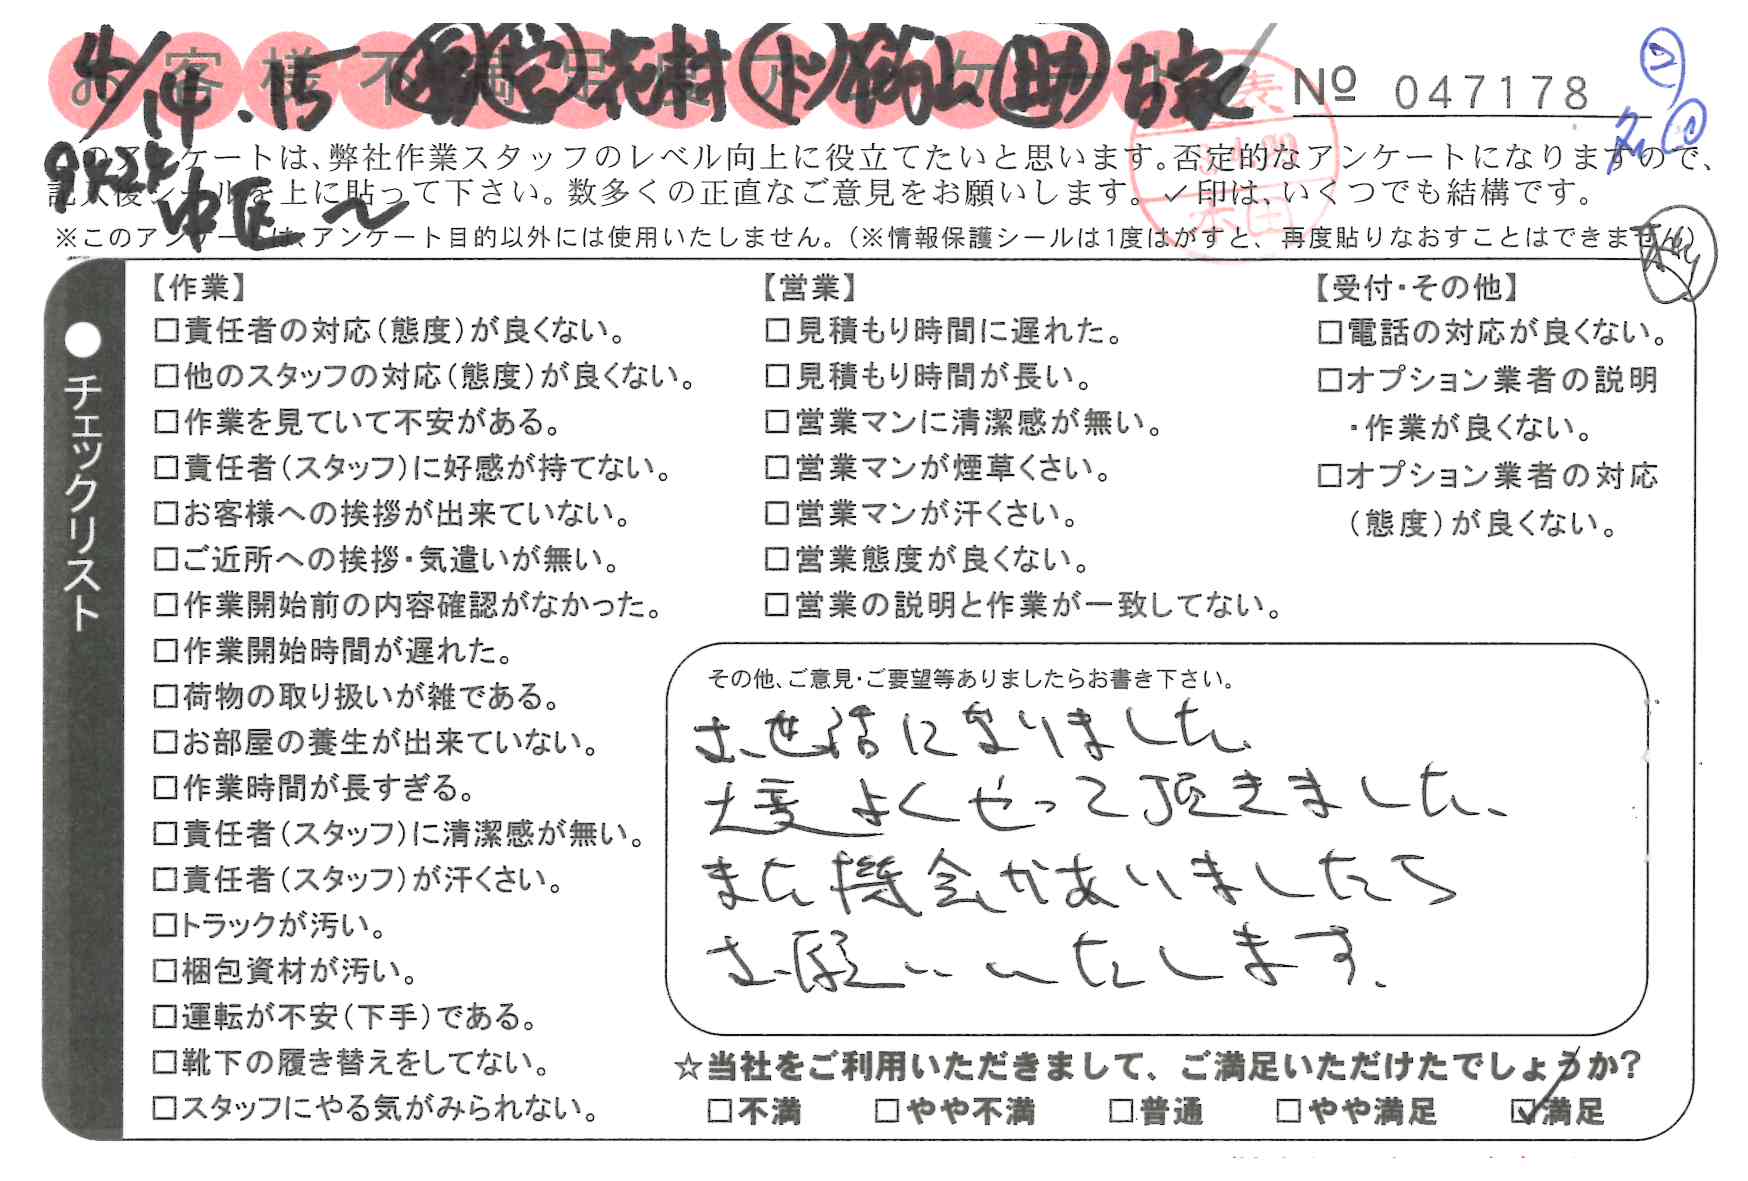 お客様不満足度アンケート
4/14.15 花村 古家
No 047178
このアンケートは、弊社作業スタッフのレベル向上に役立てたいと思います。否定的なアンケートになりますので、
記入後シールを上に貼って下さい。数多くの正直なご意見をお願いします。✓印は、いくつでも結構です。
中区〜
※このアンケートは、アンケート目的以外には使用いたしません。(※情報保護シールは1度はがすと、再度貼りなおすことはできません)
●チェックリスト
【作業】
□責任者の対応(態度)が良くない。
□他のスタッフの対応(態度)が良くない。
□作業を見ていて不安がある。
□責任者(スタッフ)に好感が持てない。
□お客様への挨拶が出来ていない。
□ご近所への挨拶・気遣いが無い。
□作業開始前の内容確認がなかった。
□作業開始時間が遅れた。
□荷物の取り扱いが雑である。
□お部屋の養生が出来ていない。
□作業時間が長すぎる。
□責任者(スタッフ)に清潔感が無い。
□責任者(スタッフ)が汗くさい。
□トラックが汚い。
□梱包資材が汚い。
□運転が不安(下手)である。
□靴下の履き替えをしてない。
□スタッフにやる気がみられない。
【営業】
□見積もり時間に遅れた。
□見積もり時間が長い。
□営業マンに清潔感が無い。
□営業マンが煙草くさい。
□営業マンが汗くさい。
□営業態度が良くない。
□営業の説明と作業が一致してない。
【受付・その他】
□電話の対応が良くない。
□オプション業者の説明
・作業が良くない。
□オプション業者の対応
(態度)が良くない。
その他、ご意見・ご要望等ありましたらお書き下さい。
お世話になりました
大変よくやって頂きました、
また機会がありましたら
お願いいたします.
☆当社をご利用いただきまして、ご満足いただけたでしょうか?
□不満 □やや不満 □普通 □やや満足 ☑満足